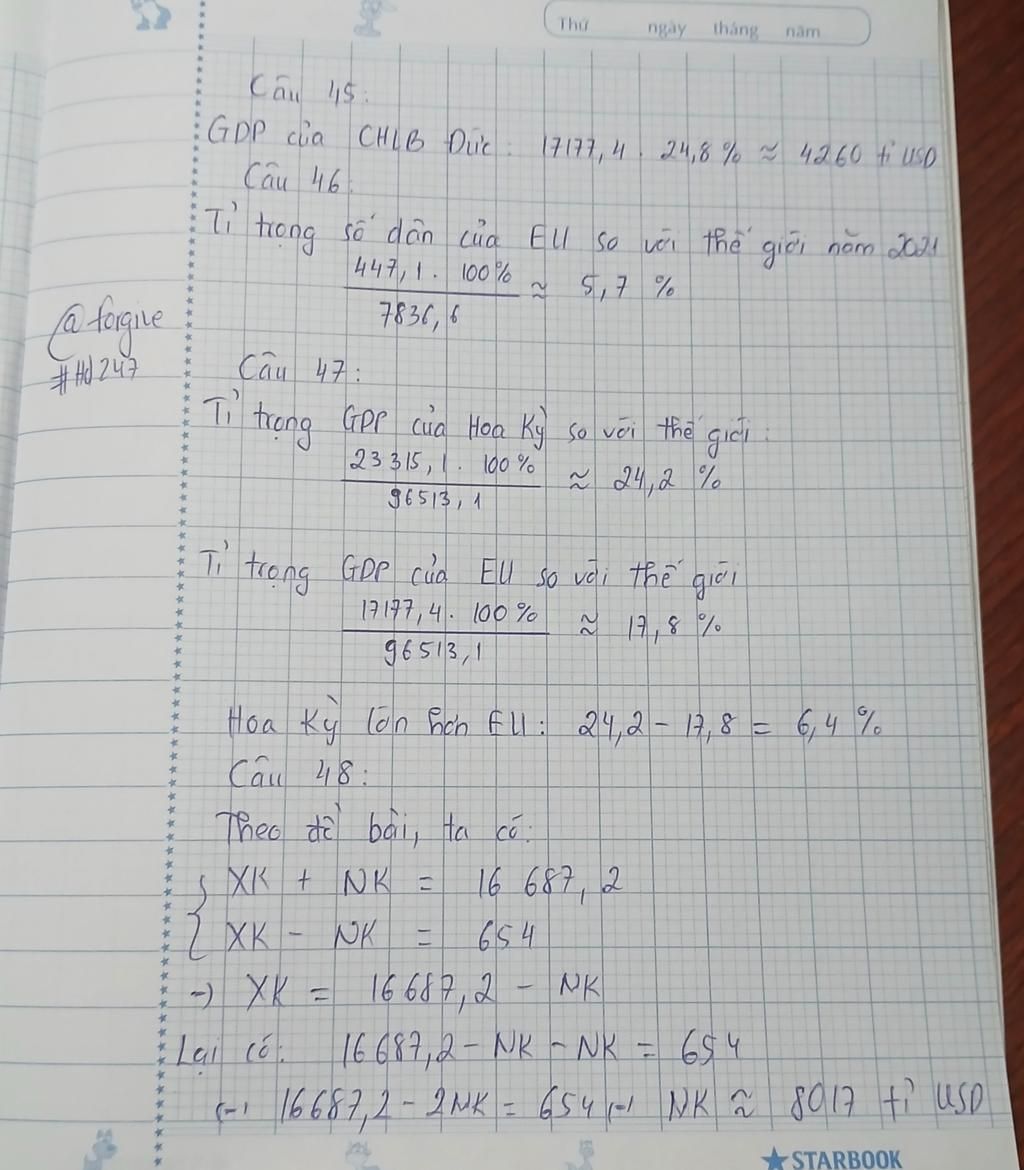 Thứ ngày tháng năm
Câu 45:
GDP của CHLB Đức: 17177,4 . 24,8% ≈ 4260 tỉ USD
Câu 46:
Tỉ trọng số dân của EU so với thế giới năm 2021
447,1 . 100%
≈ 5,7 %
7836,6
@forgive
#Hd247
Câu 47:
Tỉ trọng GDP của Hoa Kỳ so với thế giới:
23315,1 . 100%
≈ 24,2 %
96513,1
Tỉ trọng GDP của EU so với thế giới
17177,4 . 100%
≈ 17,8 %
96513,1
Hoa Kỳ lớn hơn EU: 24,2 - 17,8 = 6,4 %
Câu 48:
Theo đề bài, ta có:
{ XK + NK = 16 687,2
XK - NK = 654
-) XK = 16687,2 - NK
Lại có: 16687,2 - NK - NK = 654
(-) 16687,2 - 2NK = 654 (-) NK ≈ 8017 tỉ USD
STARBOOK